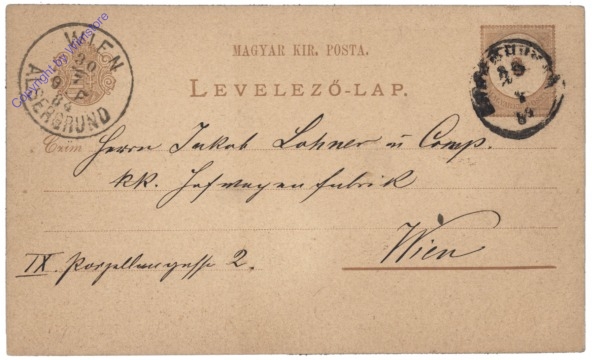 MAGYAR KIR. POSTA.
LEVELEZŐ-LAP.
WIEN
30
84
ALSERGRUND
Copyright by Wiin store
Czím
Herrn Jakob Lohner u Comp.
kk. Hofwagenfabrik
Wien
IX. Porzellangasse 2.